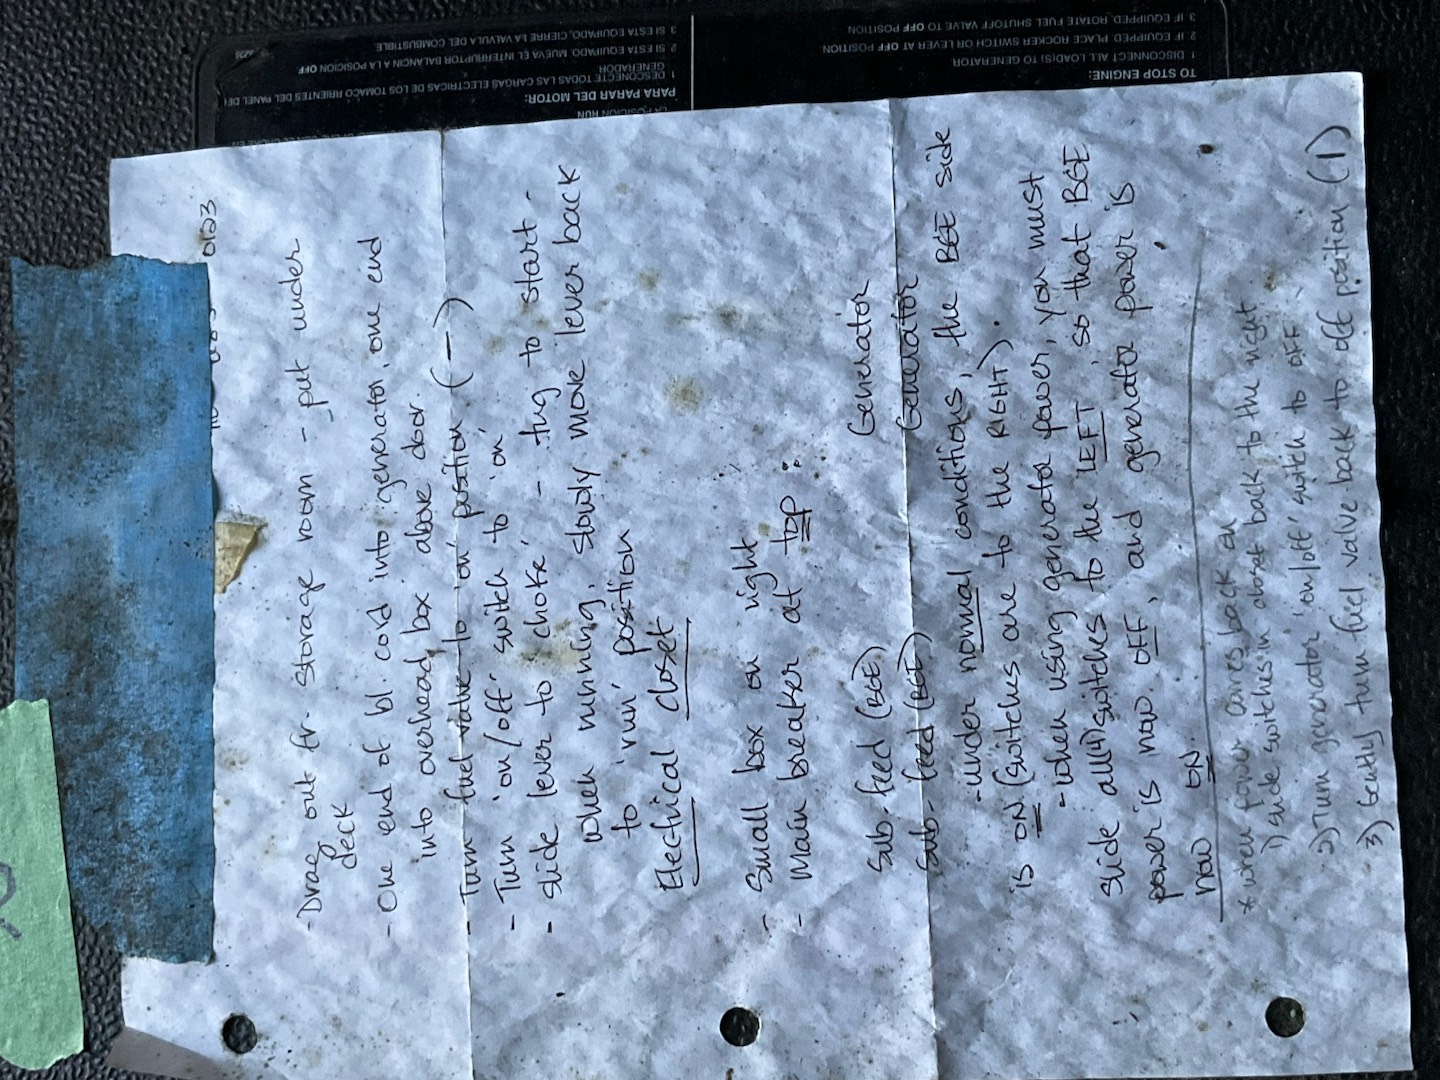 0123
- Drag out fr. storage room - put under
deck
- One end of bl. cord into generator, one end
into overhead box above door.
- Turn fuel valve to 'on' position (—)
- Turn 'on/off' switch to 'on'
- slide lever to 'choke' - tug to start -
when running, slowly move lever back
to 'run' position
Electrical closet
- Small box on right
- Main breaker at top:
Sub-feed (BGE) Generator
Sub-feed (BGE) Generator
- under normal conditions, the BGE side
is ON (switches are to the RIGHT).
- when using generator power, you must
slide all (4) switches to the LEFT, so that BGE
power is now OFF, and generator power is
now ON.
* when power comes back on
1) slide switches in closet back to the right
2) Turn generator 'on/off' switch to OFF
3) gently turn fuel valve back to off position (|)
TO STOP ENGINE:
1 DISCONNECT ALL LOAD(S) TO GENERATOR.
2 IF EQUIPPED, PLACE ROCKER SWITCH OR LEVER AT OFF POSITION
3 IF EQUIPPED, ROTATE FUEL SHUTOFF VALVE TO OFF POSITION
LA POSICION RUN
PARA PARAR DEL MOTOR:
1 DESCONECTE TODAS LAS CARGAS ELECTRICAS DE LOS TOMACORRIENTES DEL PANEL DEL
GENERADOR
2 SI ESTA EQUIPADO, MUEVA EL INTERRUPTOR BALANCIN A LA POSICION OFF
3 SI ESTA EQUIPADO, CIERRE LA VALVULA DEL COMBUSTIBLE